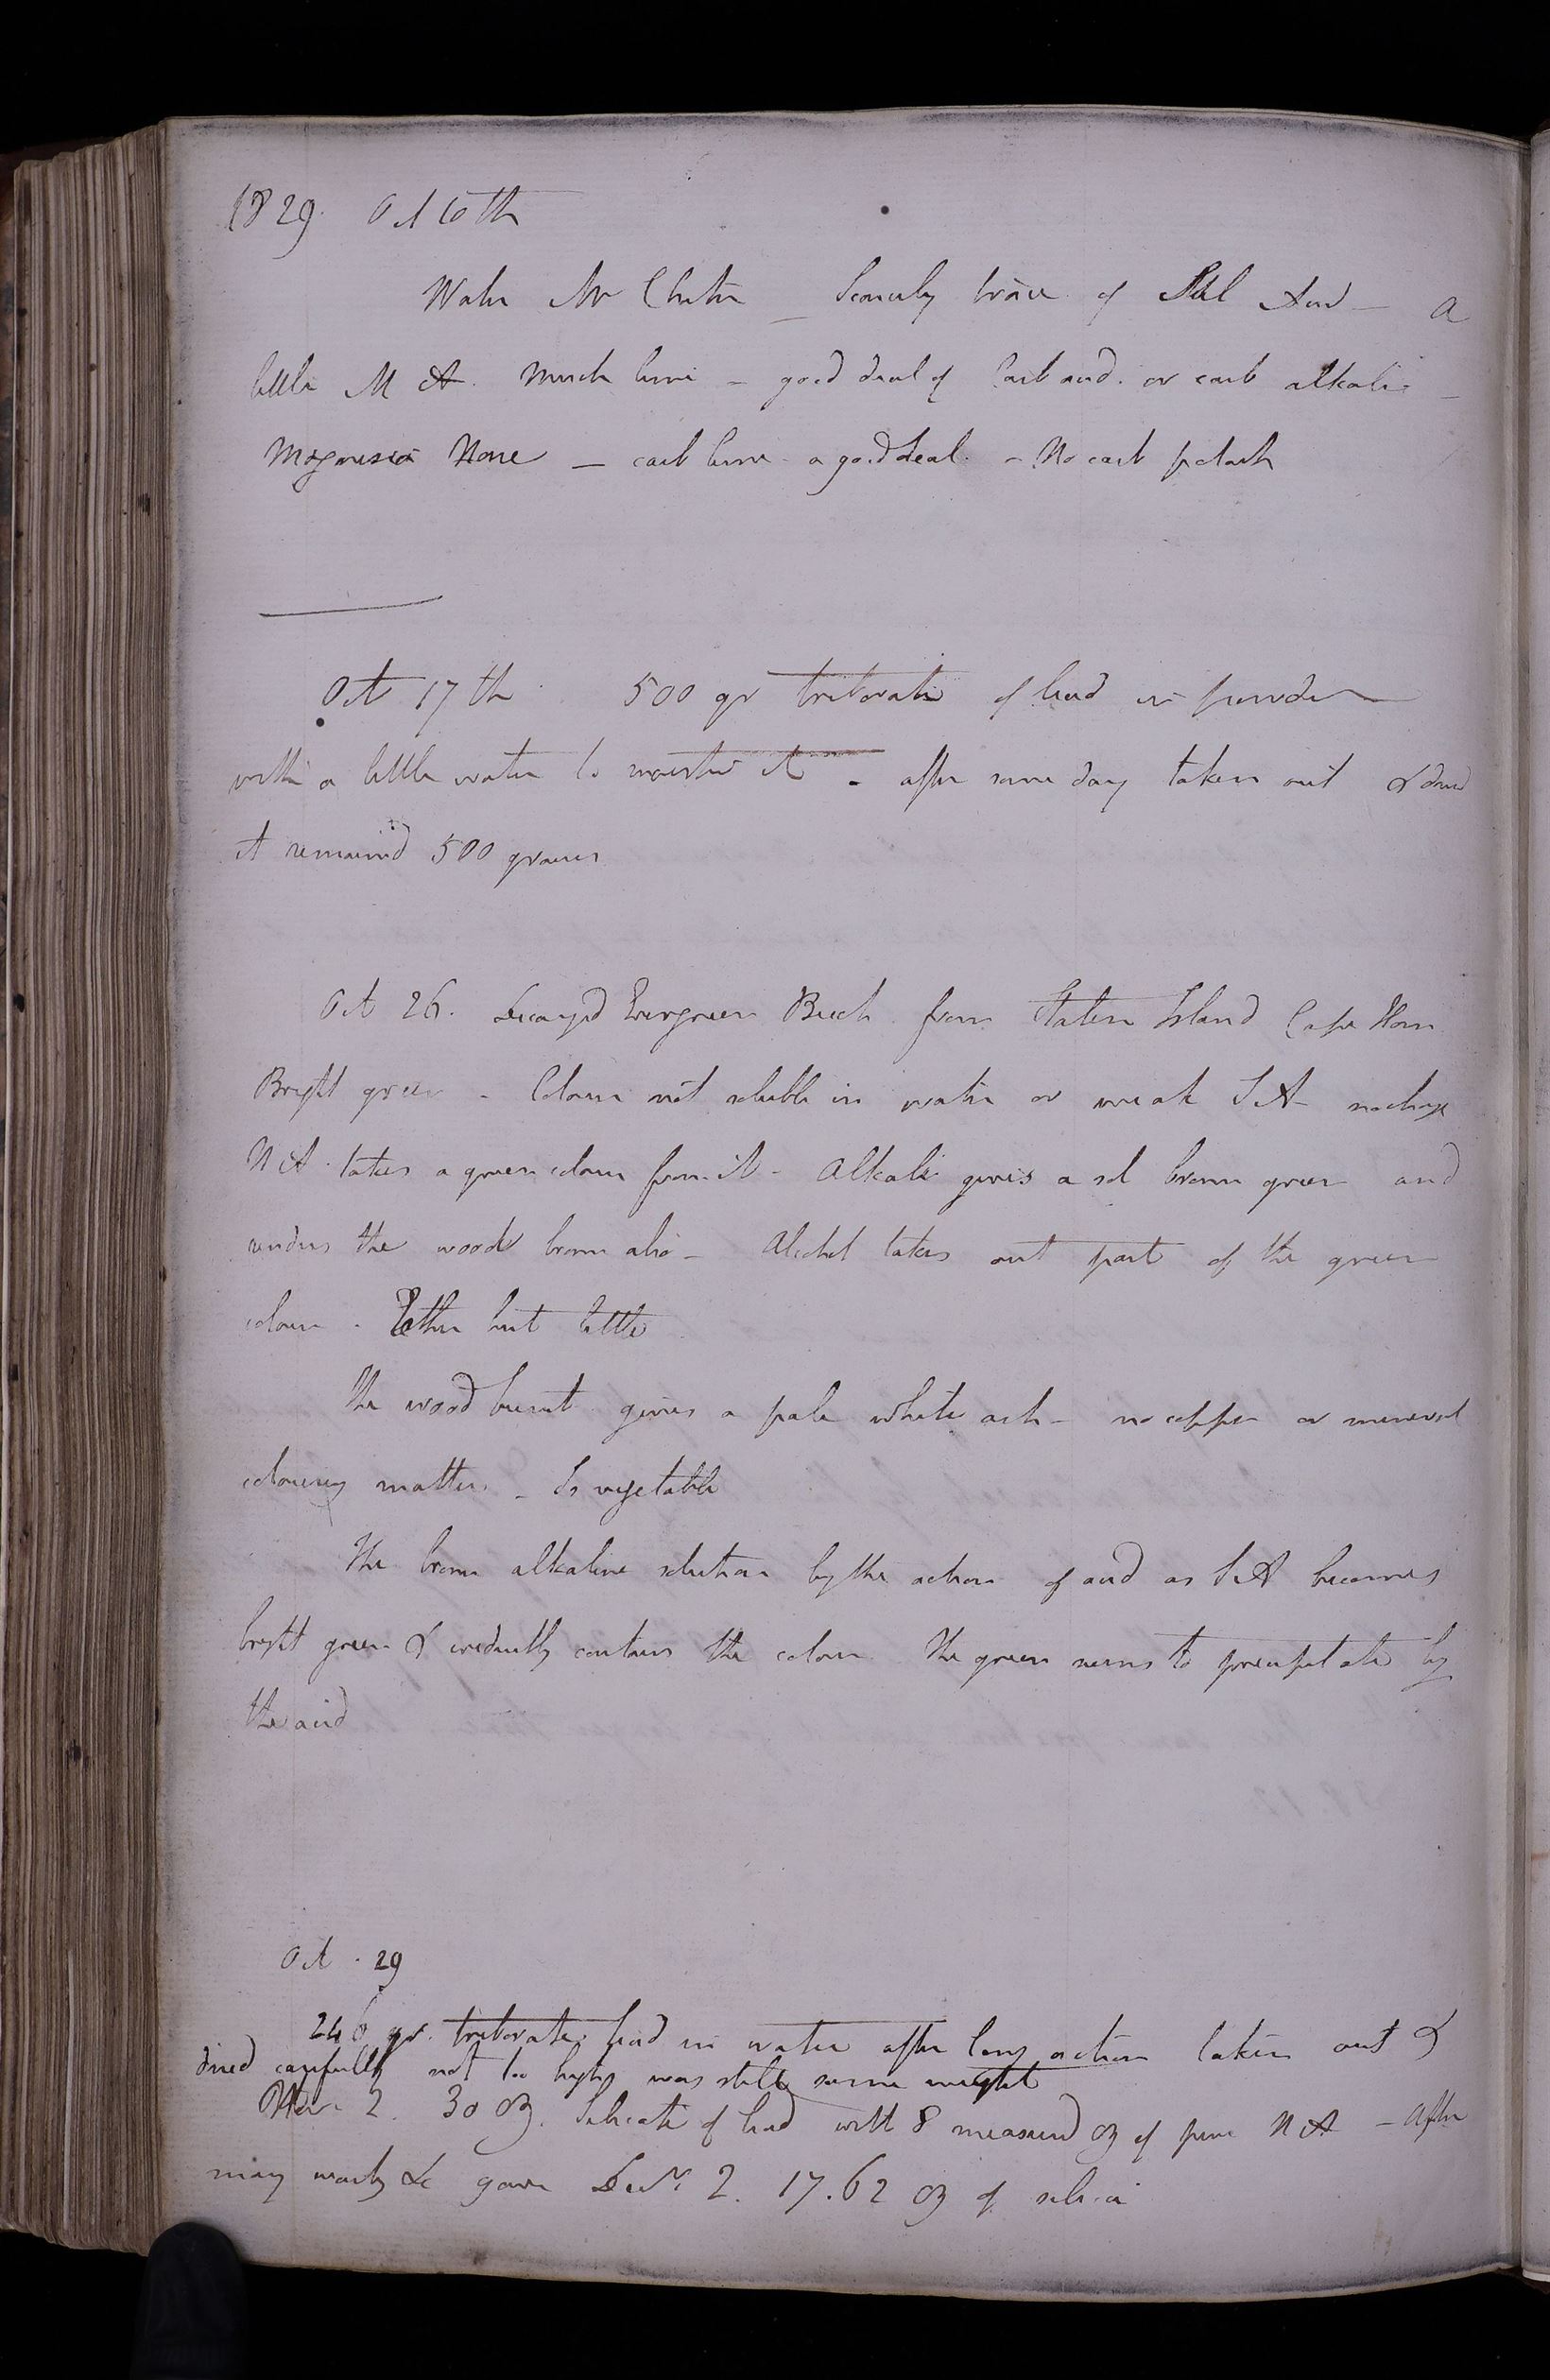 1829. Oct 10th
Water Mr — Scarcely trace of Sul Acid — a
little M A. Much lime – good deal of Carb acid. or carb alkali –
Magnesia None — carb lime a good deal. – No carb potash
Oct 17th 500 gr triborate of lead in powder
with a little water to moisten it – after some day taken out & dried
it remained 500 grains
Oct 26. Decayed Evergreen Beech from Staten Island Cape Horn
Bright green – Colour not soluble in water or weak S A – no change
N A takes a green colour from it – Alkali gives a sol brown green and
renders the wood brown also – Alcohol takes out part of the green
colour – Ether but little
The wood burnt gives a pale white ash – no copper or mineral
colouring matter. – Is vegetable
The brown alkaline solution by the action of acid as S A becomes
bright green & evidently contains the colour The green seems to precipitate by
the acid
Oct. 29
246 gr. triborate lead in water after long action taken out &
dried carefully not too highly was still same weight
Novr 2. 30 oz. Silicate of lead with 8 measured oz of pure N A – After
many washgs &c gave Decr 2. 17.62 oz of silica